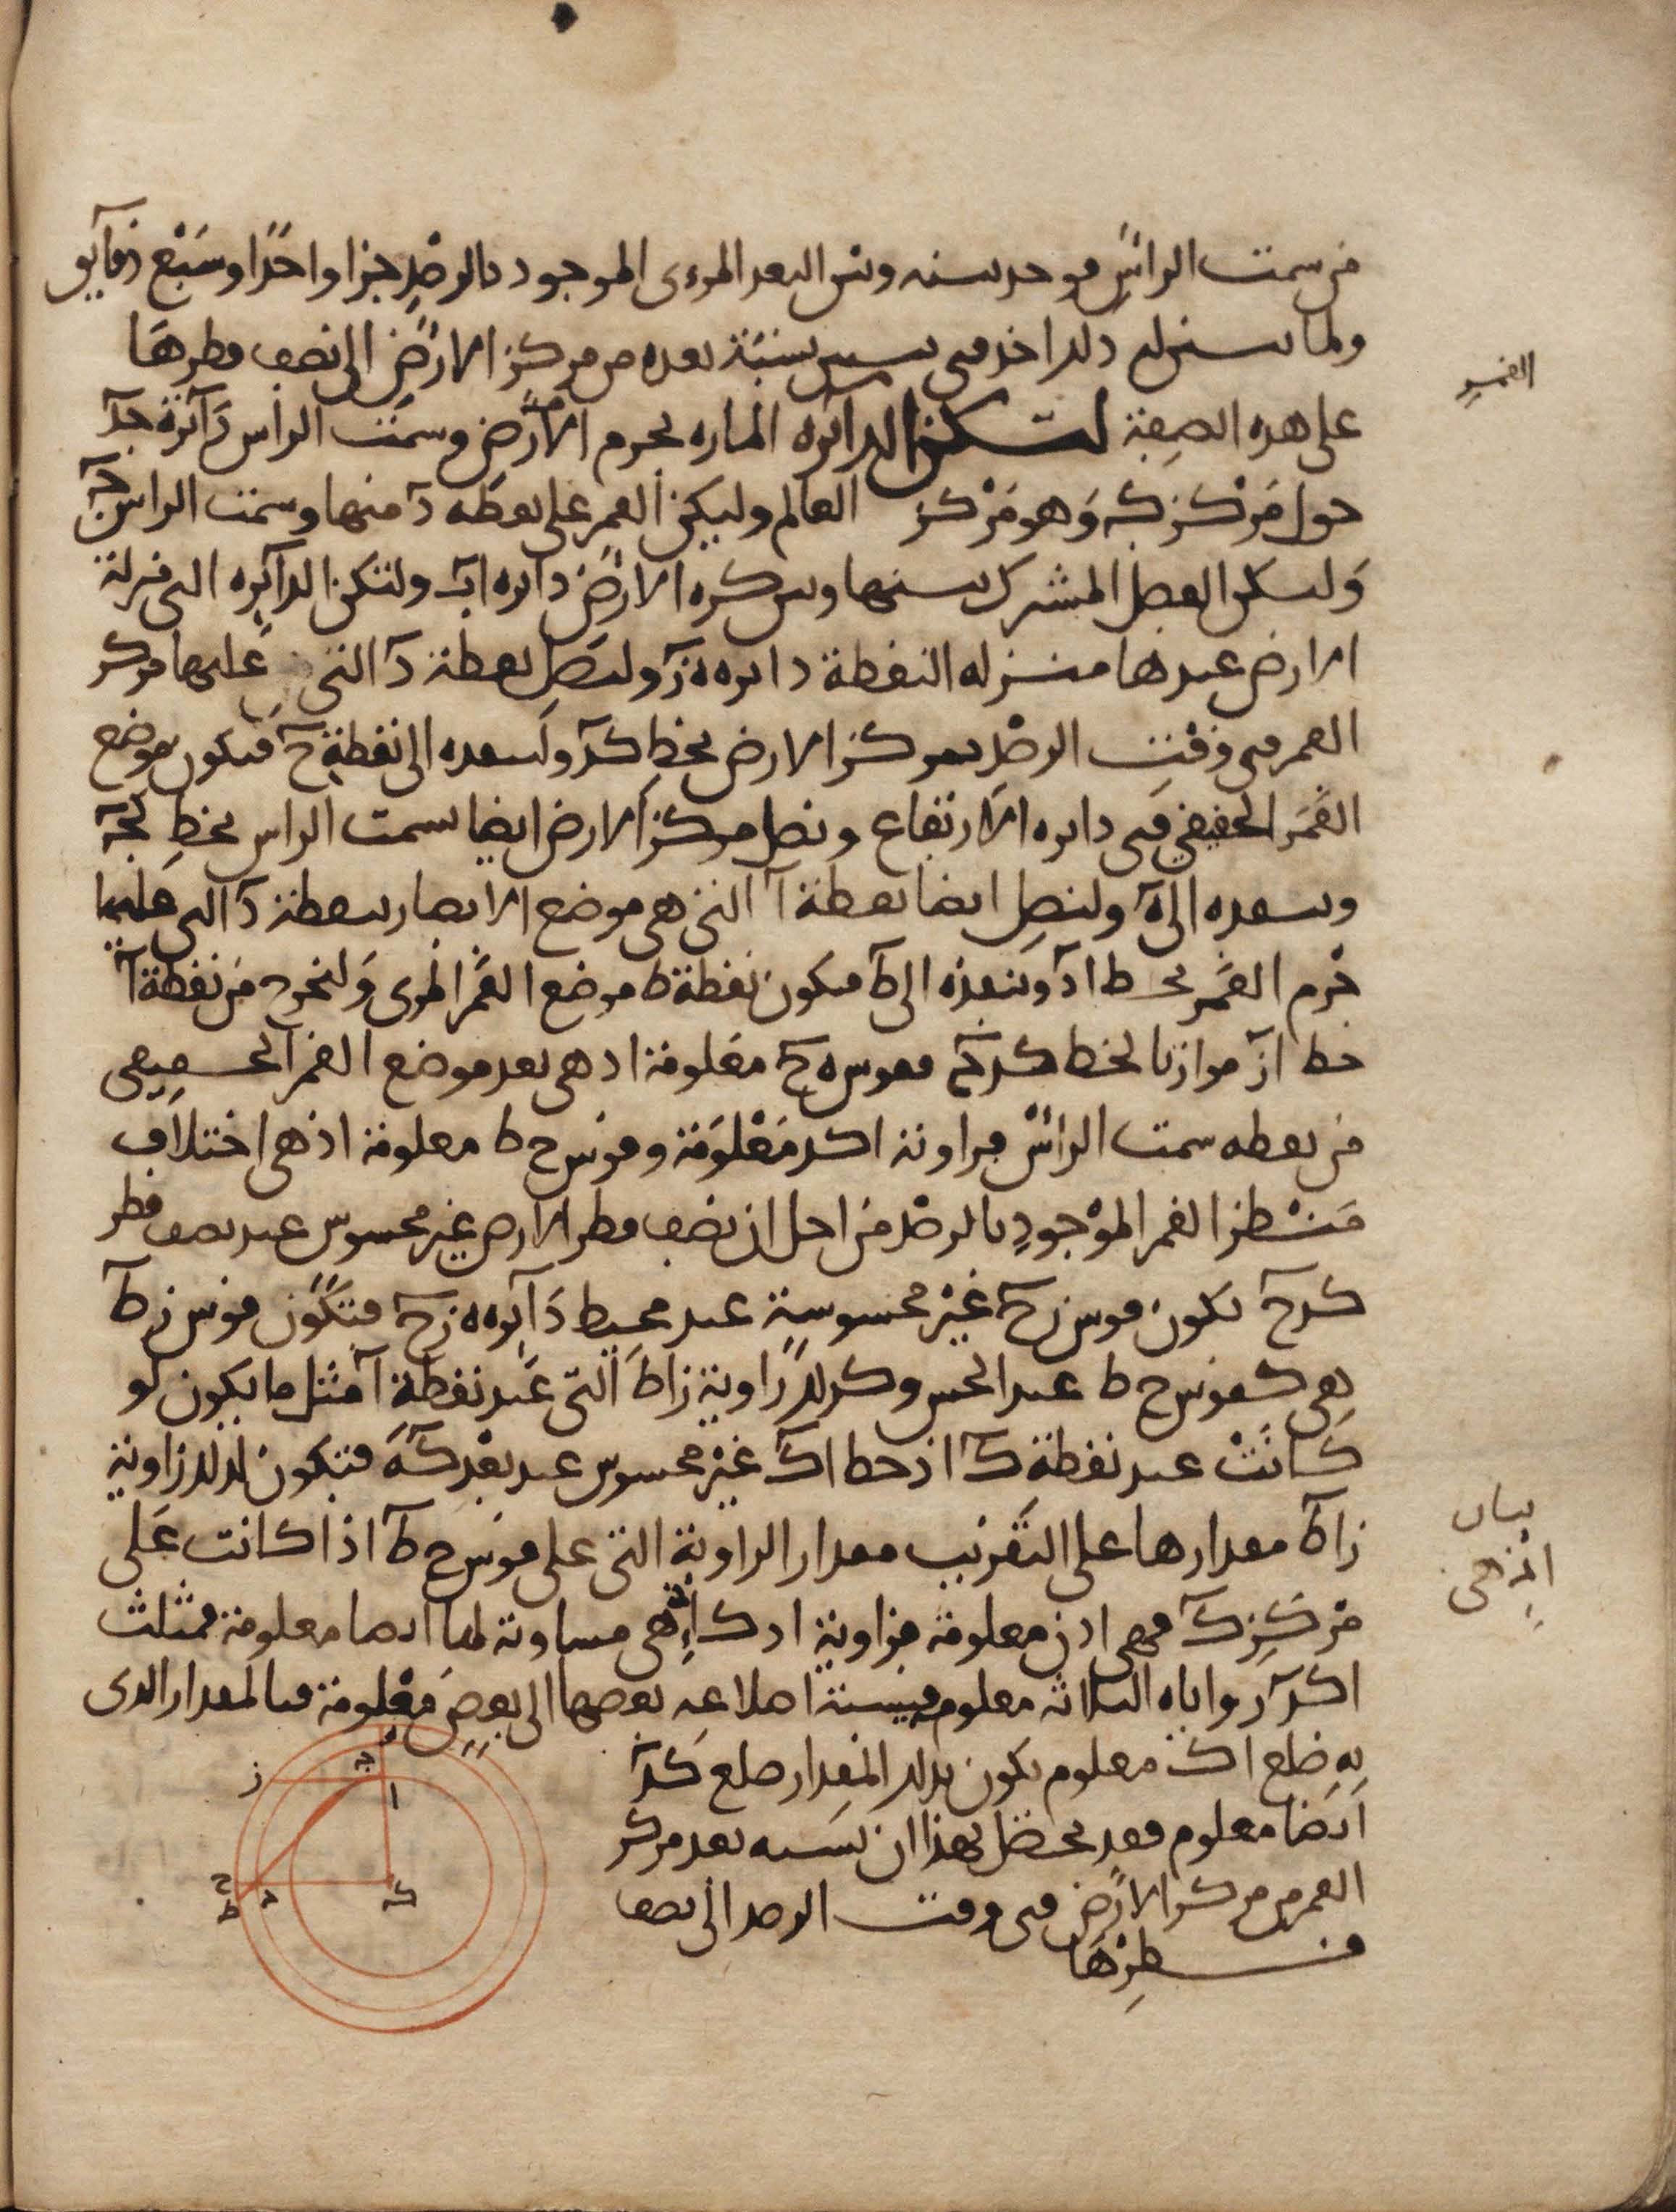 من سمت الراس فوجد بينه وبين البعد المرءى الموجود بالرصد جزا واحدا وسبع دقايق
ولما تبين له ذلك اخذ فى تبيين نسبة بعده من مركز الارض الى نصف قطرها
على هذه الصفة لتكن الدائره الماره بجرم القمر وسمت الراس دآئرة جد
حول مركز ك وهو مركز العالم وليكن القمر على نقطه د منها وسمت الراس ج
وليكن الفصل المشترك بينها وبين كره الارض دائره اب ولتكن الدآئره التى منزلة
الارض عندها منزله النقطة دائره ه ز ولنصل نقطة د التى عليها مركز
القمر فى وقت الرصد بمركز الارض بخط كد ولننفذه الى نقطة ح فيكون موضع
القمر الحقيقي فى دائره الارتفاع ونصل مركز الارض ايضا بسمت الراس بخط كج
وننفذه الى ه ولنصل ايضا نقطة ا التى هى موضع الابصار بنقطة د التى عليها
جرم القمر بخط اد وننفذه الى ط فيكون نقطة ط موضع القمر المرى ولنخرج من نقطة ا
خط از موازيا لخط كدح فقوس ه ح معلومة اذ هى بعد موضع القمر الحقيقى
من نقطه سمت الراس فزاوية اكد معلومة وقوس ح ط معلومة اذ هى اختلاف
منظر القمر الموجود بالرصد من اجل ان نصف قطر الارض غير محسوس عند نصف قطر
كدح تكون قوس زح غير محسوسة عند محيط دآئره ه زح فتكون قوس زط
هى كقوس ح ط عند الحس وكذلك زاوية زاط التى عند نقطة ا مثل ما يكون لو
كانت عند نقطة ك اذ خط اك غير محسوس عند بعد كه فتكون لذلك زاوية
زاط مقدارها على التقريب مقدار الزاوية التى على قوس ح ط اذا كانت على
مركز ك فهى اذن معلومة فزاوية ادك اذ هى مساوية لها ايضا معلومة فمثلث
اكد زواياه الثلاثه معلومه فنسبة اضلاعه بعضها الى بعض معلومة فبالمقدار الذى
به ضلع اك معلوم يكون بذلك المقدار ضلع كد
ايضا معلوم فقد تحصل بهذا ان نسبه بعد مركز
القمر من مركز الارض فى وقت الرصد الى نصف
قطرها
القمر
بيان
اذ هى
ه
ج
ا
ز
ح
ط
د
ك